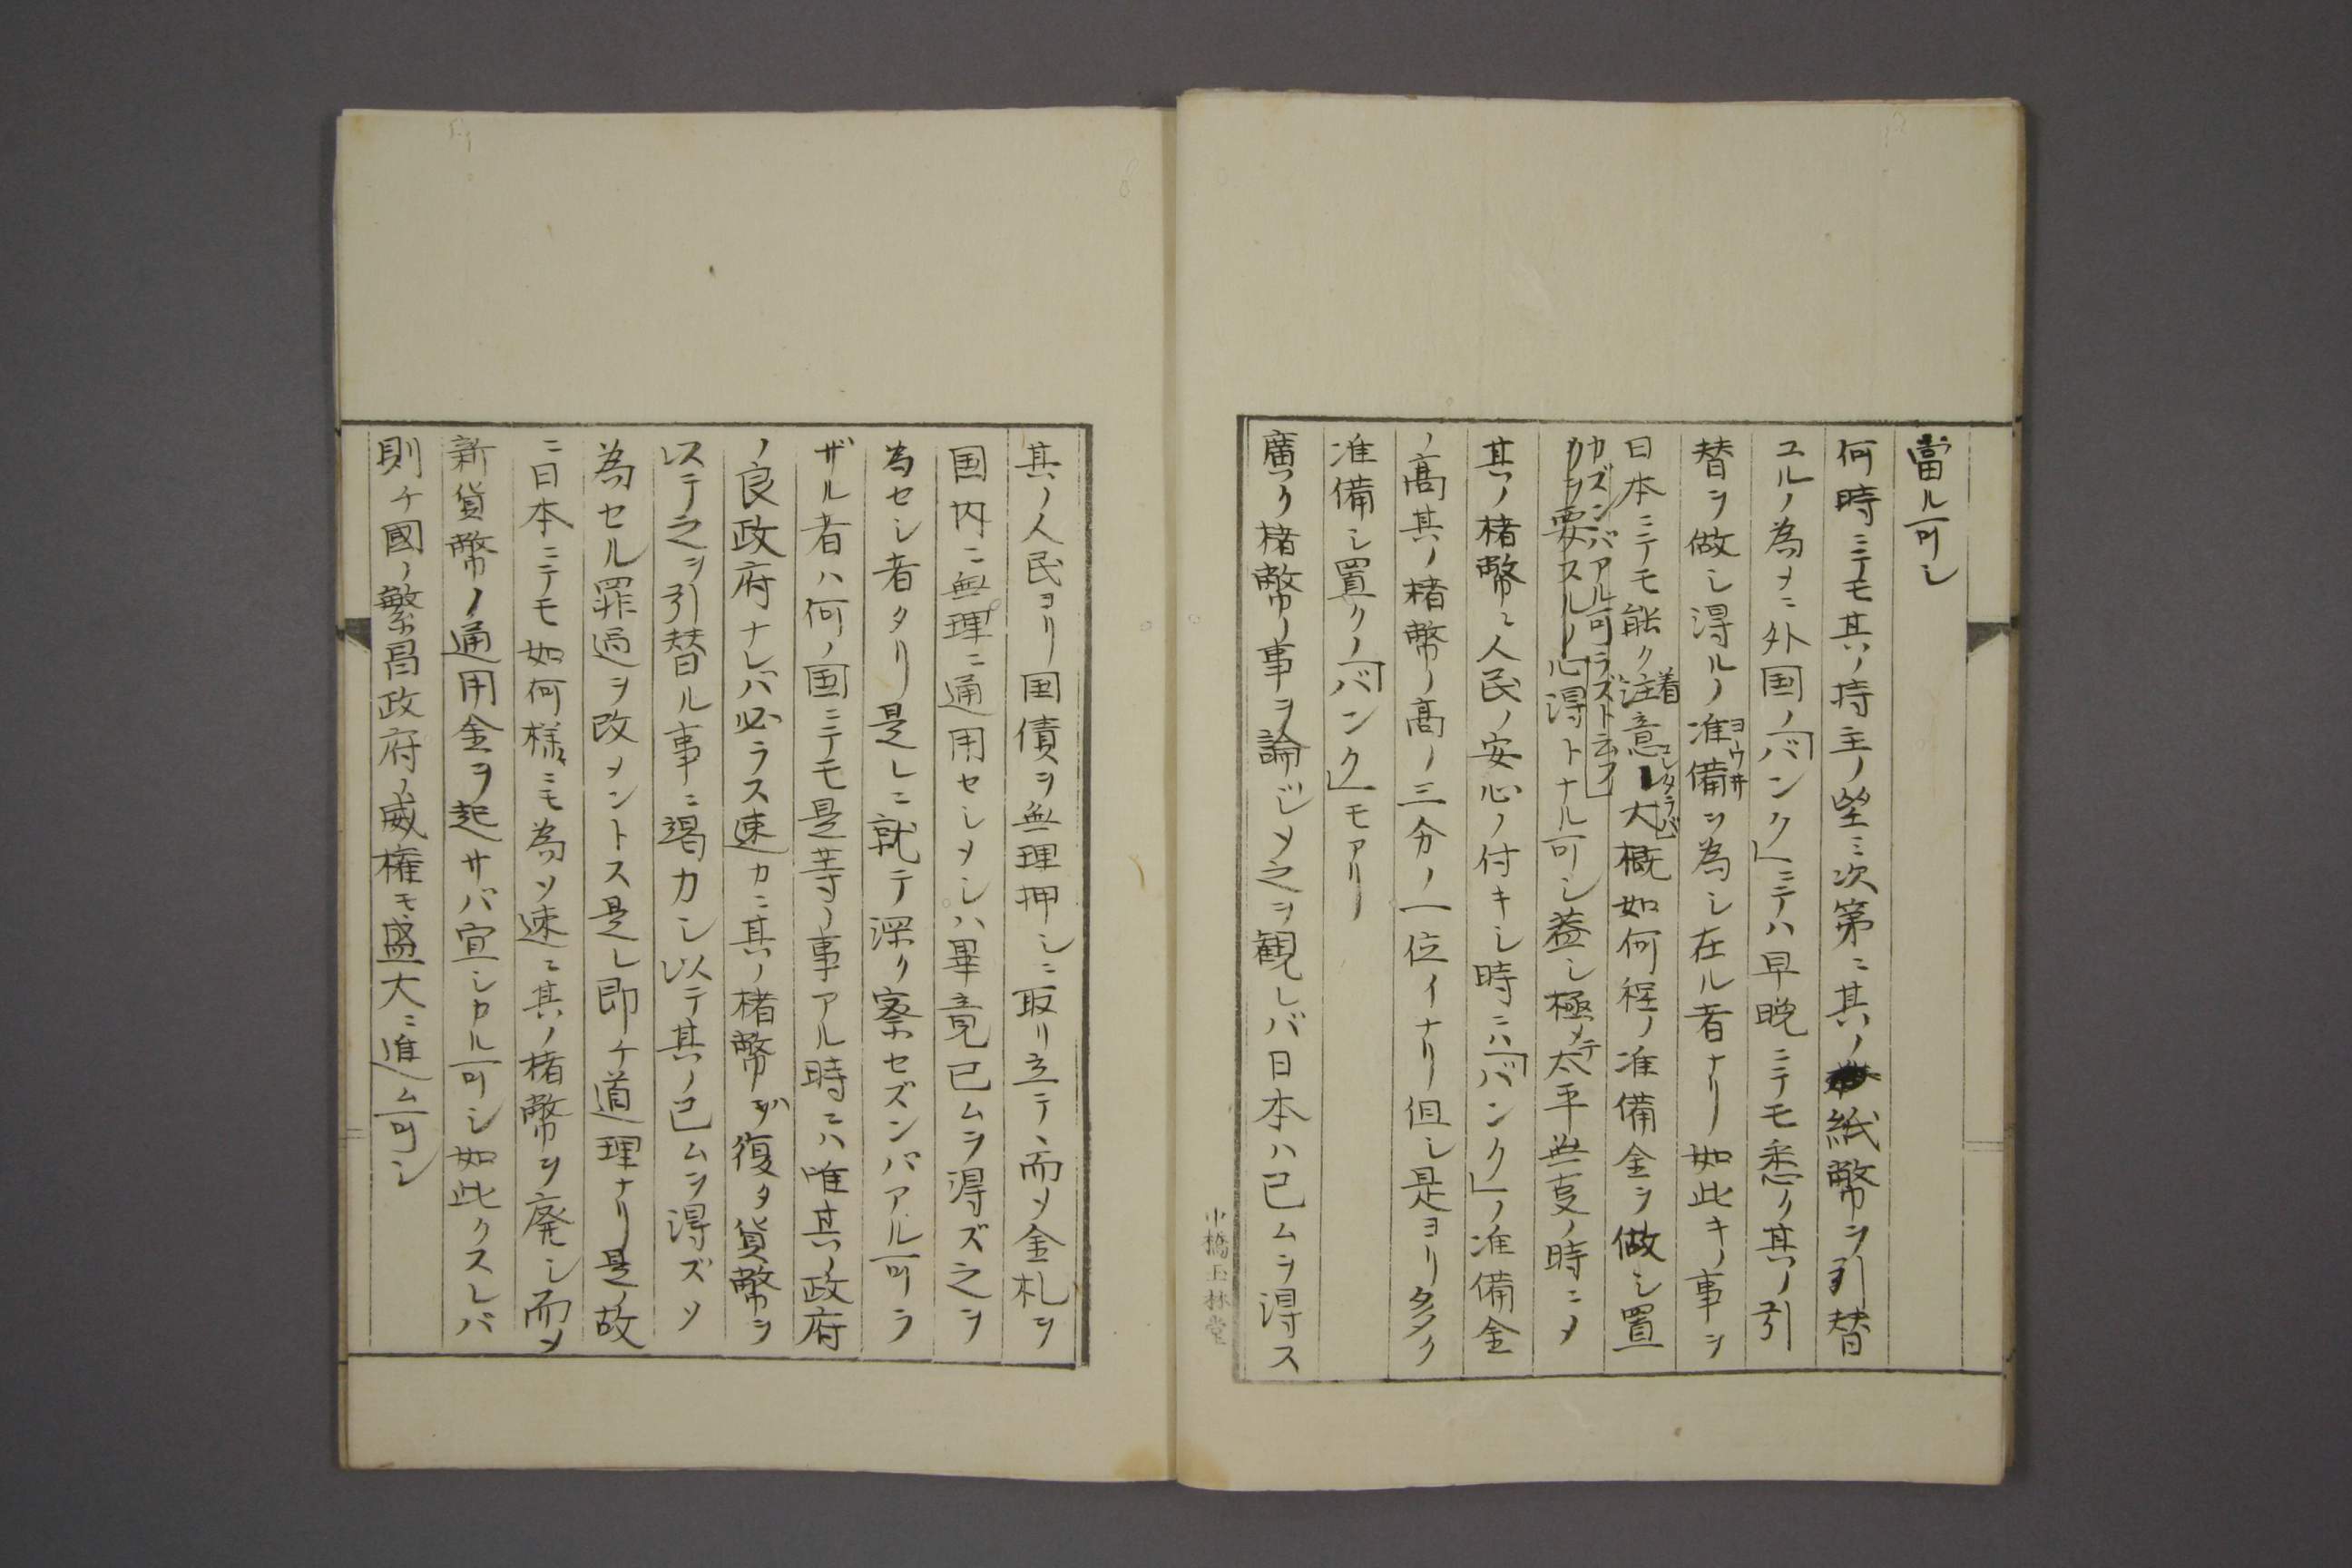 當ル可シ
何時ニテモ其ノ持主ノ望ミ次第ニ其ノ紙幣ヲ引替
ユルノ為メニ外国ノ「バンク」ニテハ早晩ニテモ悉ク其ノ引
替ヲ做シ得ルノ准備ヲ為シ在ル者ナリ如此キノ事ヲ
ヨウ井
日本ニテモ能ク注意シ大概如何程ノ准備金ヲ做シ置
着
シタラバ
カズンバアル可ラズト云フ
カヲ要スルノ心得トナル可シ蓋シ極メテ太平無事ノ時ニメ
其ノ楮幣ニ人民ノ安心ノ付キシ時ニハ「バンク」ノ准備金
ノ高其ノ楮幣ノ高ノ三分ノ一位イナリ但シ是ヨリ多ク
准備シ置クノ「バンク」モアリ
廣ク楮幣ノ事ヲ論ジメ之ヲ観レバ日本ハ已ムヲ得ス
中橋玉林堂
其ノ人民ヨリ国債ヲ無理押シニ取リ立テ、而メ金札ヲ
国内ニ無理ニ通用セシメシハ畢竟已ムヲ得ズ之ヲ
為セシ者タリ是レニ就テ深ク察セズンバアル可ラ
ザル者ハ何ノ国ニテモ是等ノ事アル時ニハ唯其ノ政府
ノ良政府ナレバ必ラス速カニ其ノ楮幣ヲ復タ貨幣ヲ
以テ之ヲ引替ル事ニ竭力シ以テ其ノ已ムヲ得ズソ
為セル罪過ヲ改メントス是レ即チ道理ナリ是ノ故
ニ日本ニテモ如何様ニモ為ソ速ニ其ノ楮幣ヲ廃シ而メ
新貨幣ノ通用金ヲ起サバ宜シカル可シ如此クスレバ
則チ國ノ繁昌政府ノ威権モ盛大ニ進ム可シ